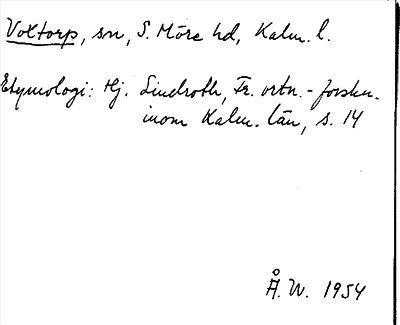 Voxtorp, sn, S. Möre hd, Kalm. l.
Etymologi: Hj. Lindroth, Fr. ortn.-forskn.
inom Kalm. län, s. 14
Å. W. 1954